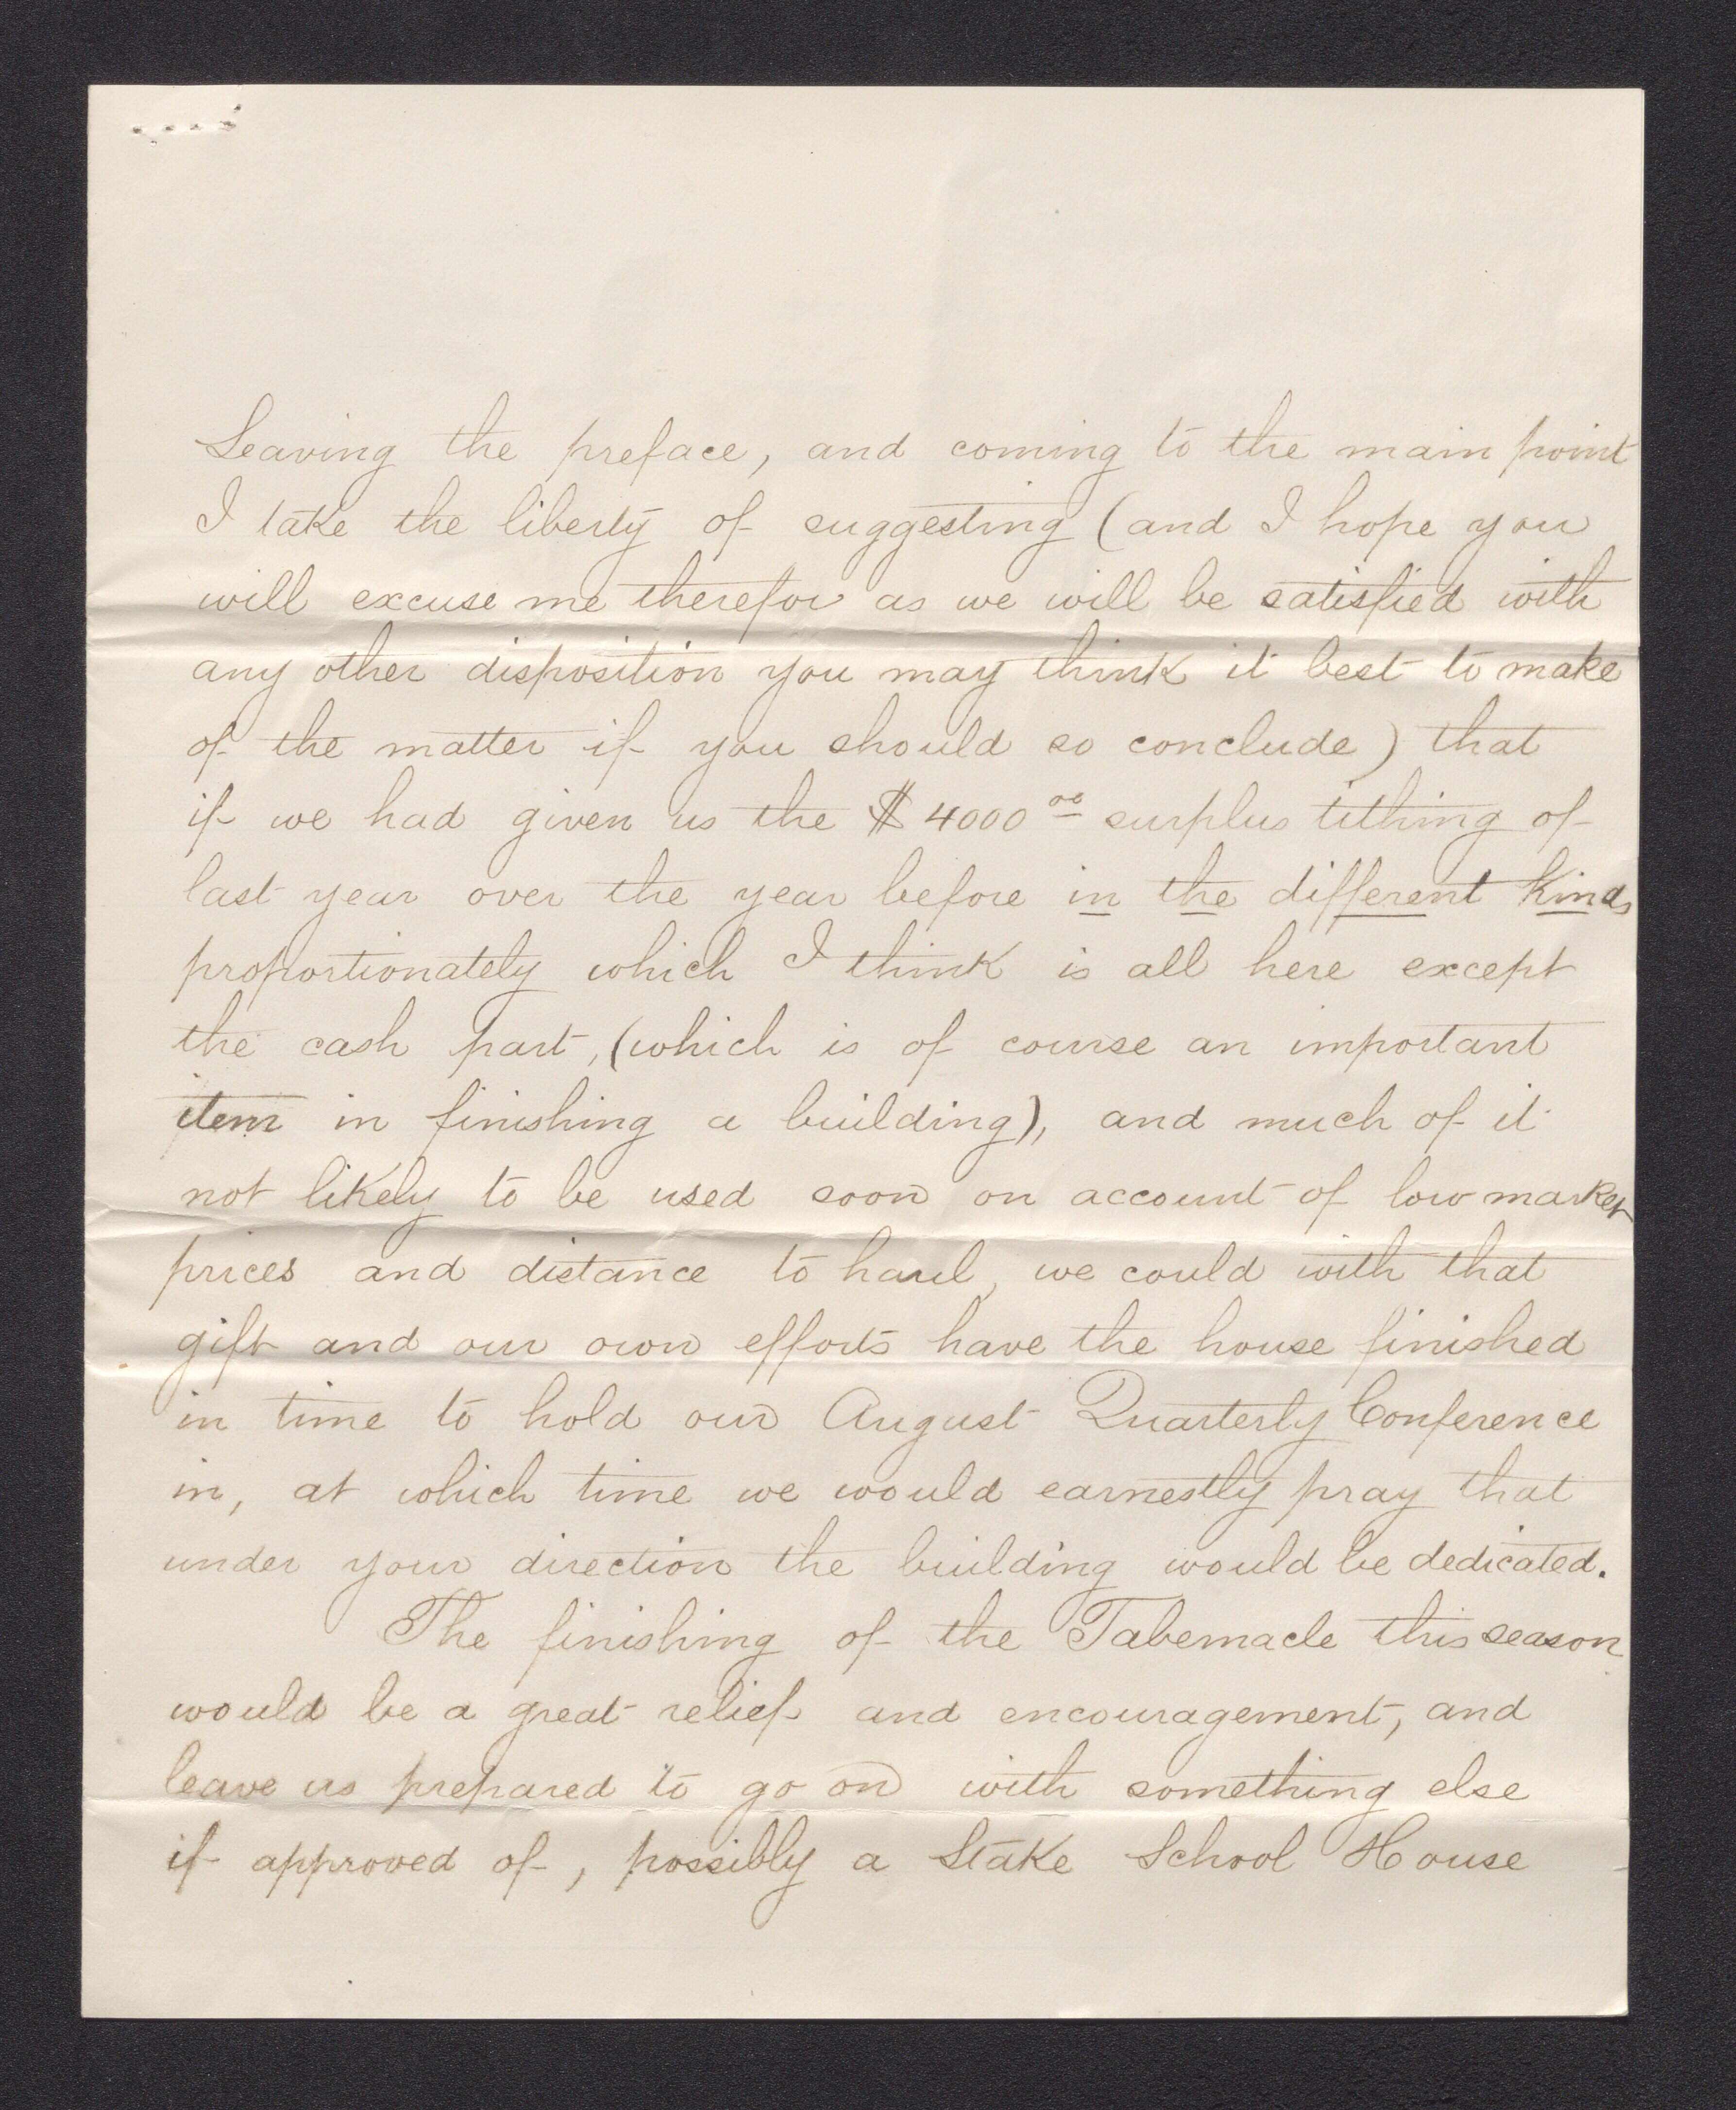 Leaving the preface, and coming to the main point
I take the liberty of suggesting (and I hope you
will excuse me therefor as we will be satisfied with
any other disposition you may think it best to make
of the matter if you should so conclude) that
if we had given us the $4000 00 surplus tithing of
last year over the year before in the different kinds
proportionately which I think is all here except
the cash part, (which is of course an important
item in finishing a building), and much of it
not likely to be used soon on account of low market
prices and distance to haul, we could with that
gift and our own efforts have the house finished
in time to hold our August Quarterly Conference
in, at which time we would earnestly pray that
under your direction the building would be dedicated.
The finishing of the Tabernacle this season
would be a great relief and encouragement, and
leave us prepared to go on with something else
if approved of, possibly a Stake School House